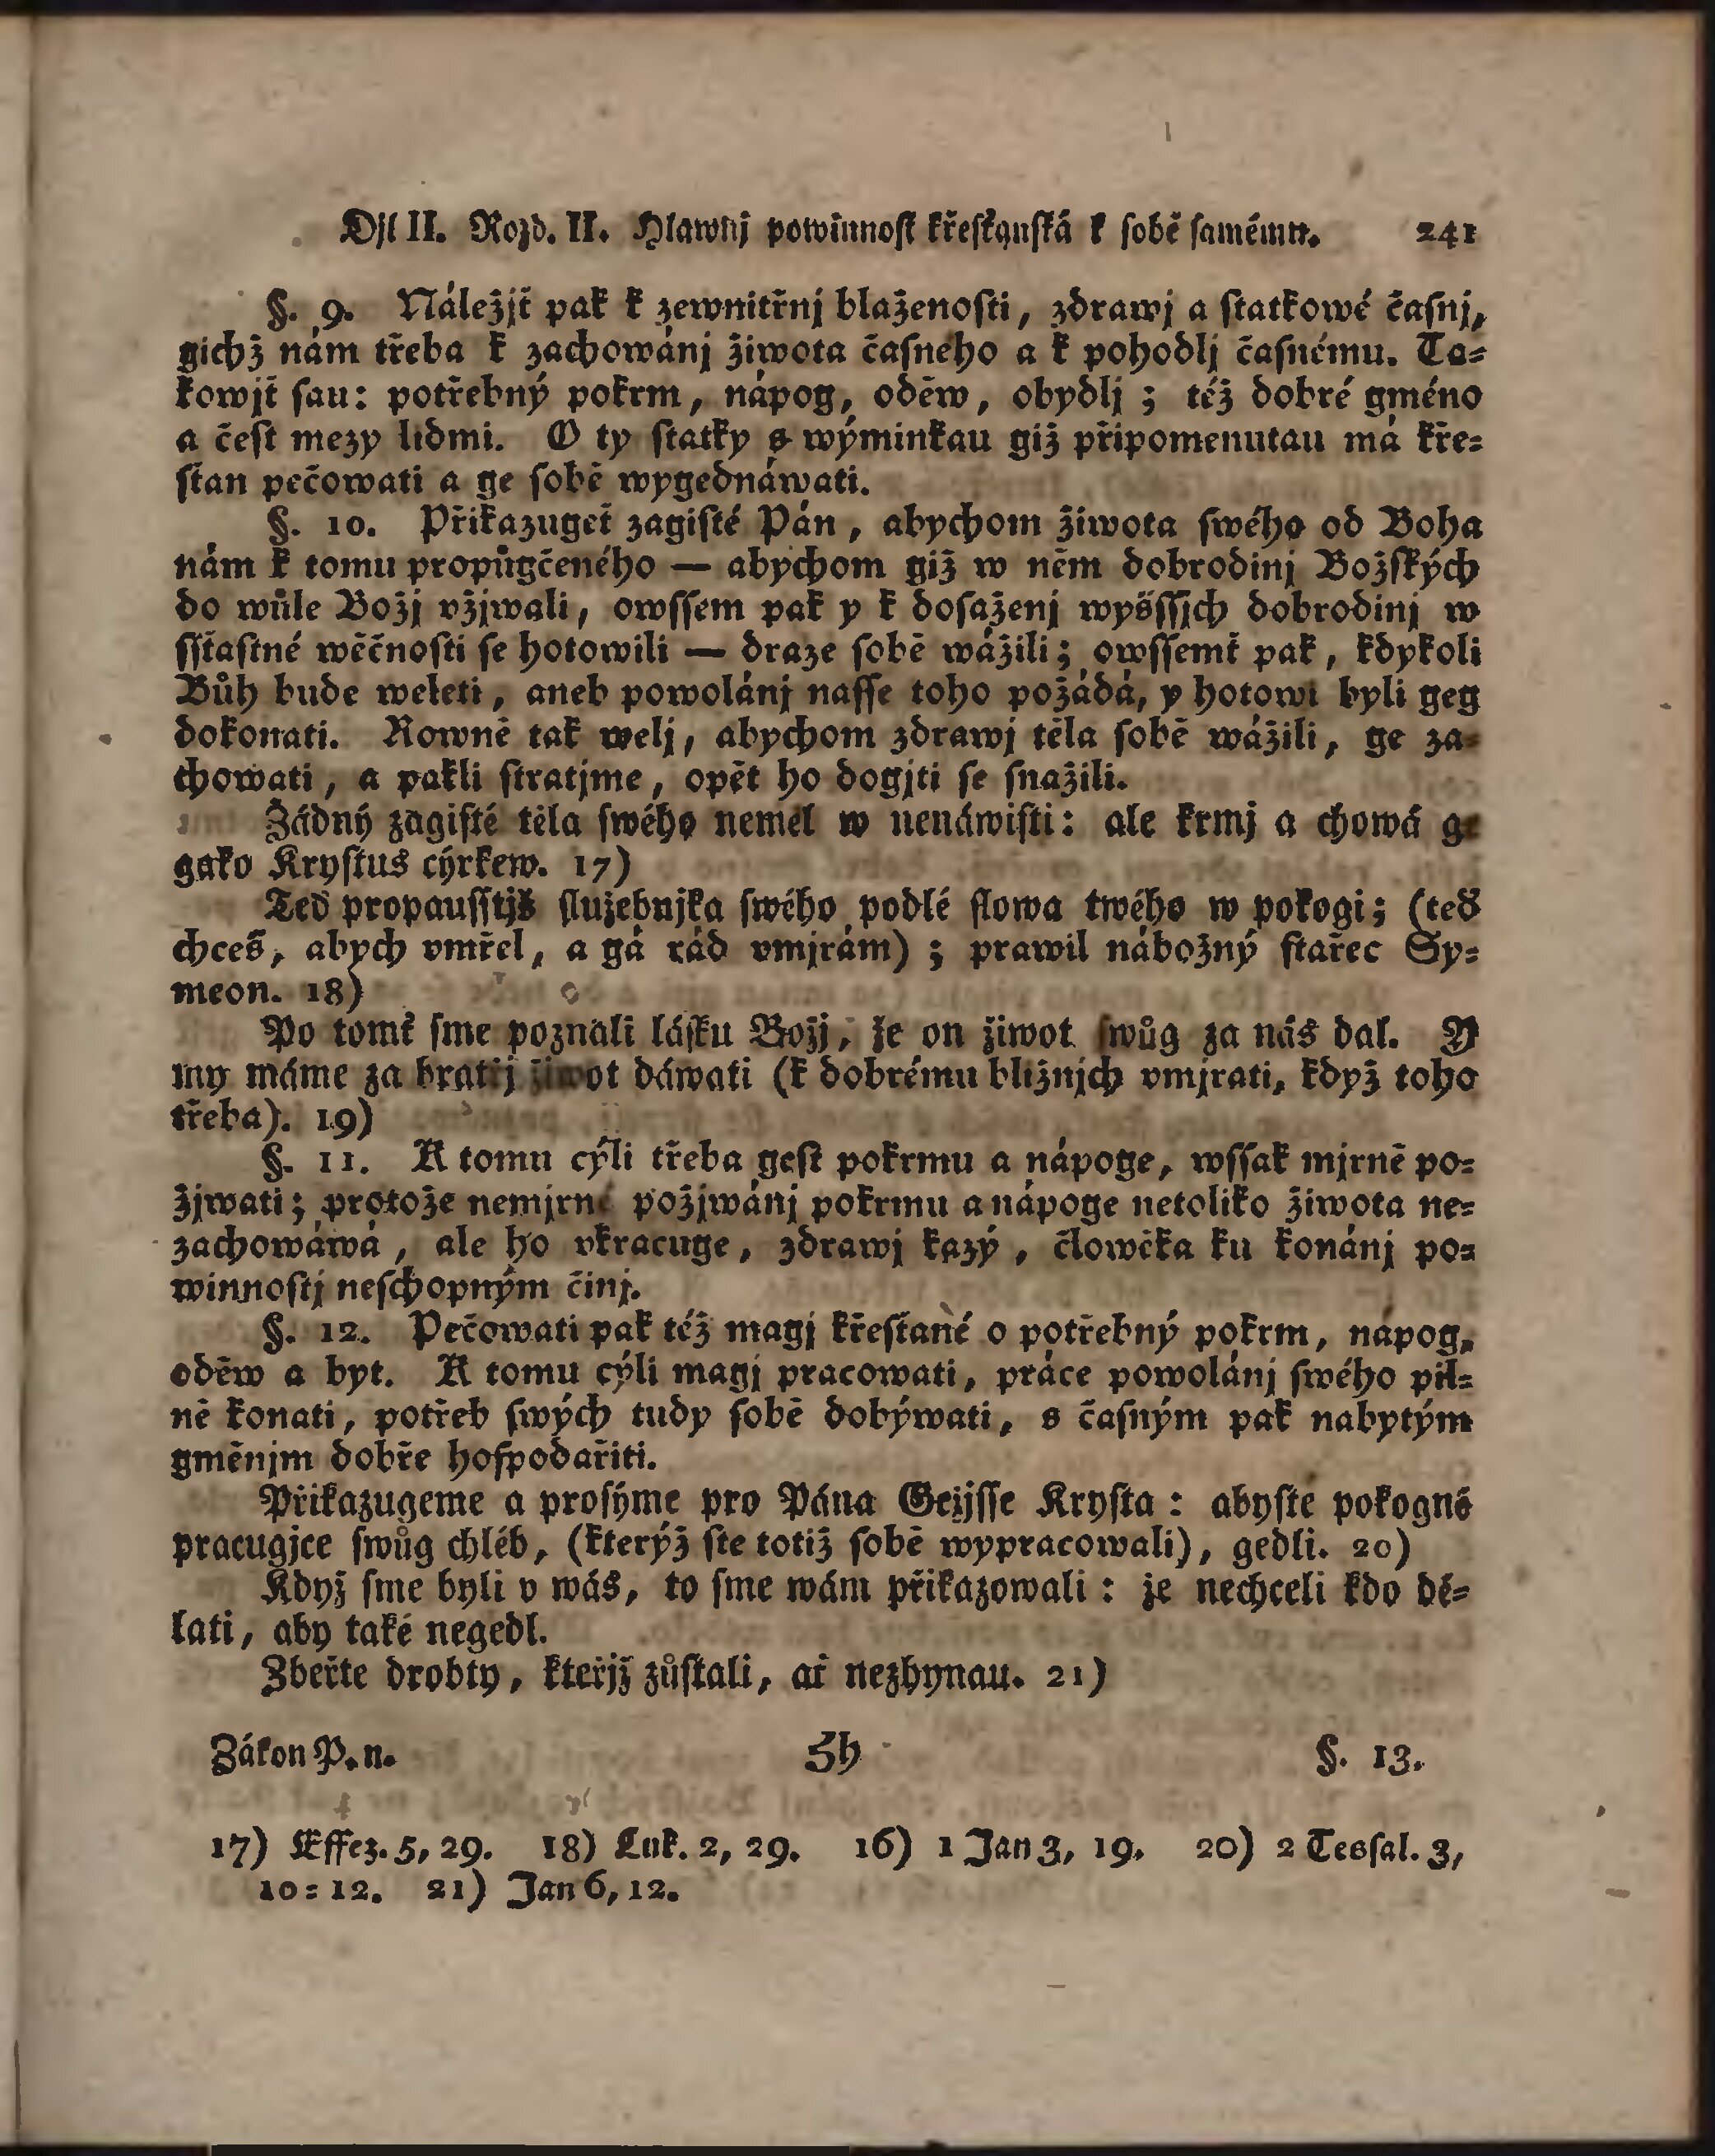 Djl II. Rozd. II. Hlawnj powinnoſt křeſťanſká k ſobě ſamému. 241
§. 9. Náležjť pak k zewnitřnj blaženoſti, zdrawj a ſtatkowé čaſnj,
gichž nám třeba k zachowánj žiwota čaſného a k pohodlj čaſnému. Ta=
kowjť ſau: potřebný pokrm, nápog, oděw, obydlj; též dobré gméno
a čeſt mezy lidmi. O ty ſtatky s wýminkau giž připomenutau má kře=
ſťan pečowati a ge ſobě wygednáwati.
§. 10. Přikazugeť zagiſté Pán, abychom žiwota ſwého od Boha
nám k tomu propůgčeného — abychom giž w něm dobrodinj Božſkých
do wůle Božj vžjwali, owſſem pak y k doſaženj wyšſſjch dobrodinj w
ſſťaſtné wěčnoſti ſe hotowili — draze ſobě wážili; owſſemť pak, kdykoli
Bůh bude weleti, aneb powolánj naſſe toho požádá, y hotowi byli geg
dokonati. Rowně tak welj, abychom zdrawj těla ſobě wážili, ge za=
chowati, a pakli ſtratjme, opět ho dogjti ſe ſnažili.
Žádný zagiſté těla ſwého neměl w nenáwiſti: ale krmj a chowá ge
gako Kryſtus cýrkew. 17)
Teď propauſſtjš ſlužebnjka ſwého podlé ſlowa twého w pokogi; (teď
chceš, abych vmřel, a gá rád vmjrám); prawil nábožný ſtařec Sy=
meon. 18)
Po tomť ſme poznali láſku Božj, že on žiwot ſwůg za nás dal. Y
my máme za bratřj žiwot dáwati (k dobrému bližnjch vmjrati, když toho
třeba). 19)
§. 11. K tomu cýli třeba geſt pokrmu a nápoge, wſſak mjrně po=
žjwati; protože nemjrné požjwánj pokrmu a nápoge netoliko žiwota ne=
zachowáwá, ale ho vkracuge, zdrawj kazý, člowěka ku konánj po=
winnoſtj neſchopným činj.
§. 12. Pečowati pak též magj křeſťané o potřebný pokrm, nápog,
oděw a byt. K tomu cýli magj pracowati, práce powolánj ſwého pil=
ně konati, potřeb ſwých tudy ſobě dobýwati, s čaſným pak nabytým
gměnjm dobře hoſpodařiti.
Přikazugeme a proſýme pro Pána Gežjſſe Kryſta: abyſte pokogně
pracugjce ſwůg chléb, (kterýž ſte totiž ſobě wypracowali), gedli. 20)
Když ſme byli v wás, to ſme wám přikazowali: že nechceli kdo dě=
lati, aby také negedl.
Zbeřte drobty, kteřjž zůſtali, ať nezhynau. 21)
Zákon P. n. Hh §. 13.
17) Effez. 5, 29. 18) Luk. 2, 29. 16) 1 Jan 3, 19. 20) 2 Tesſal. 3,
10=12. 21) Jan 6, 12.